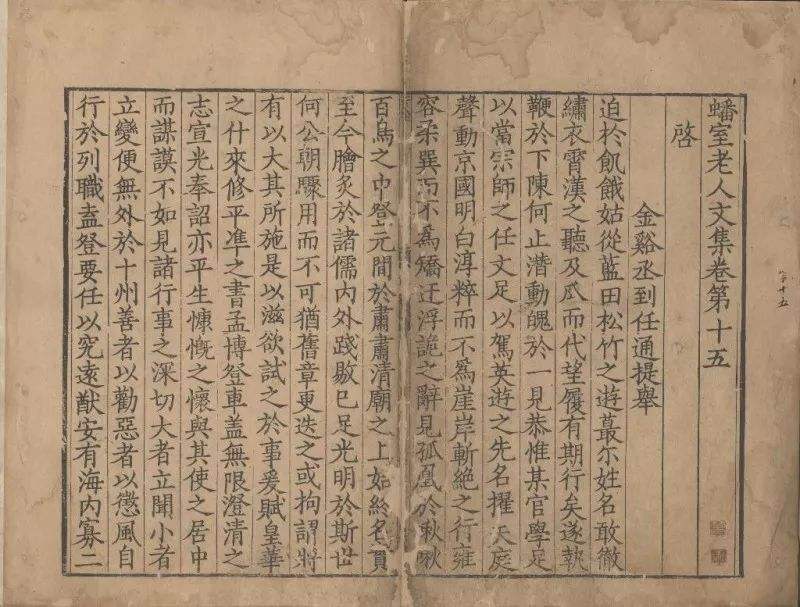 蟠室老人文集卷第十五
啓
金谿丞到任通提舉
迫於飢餓姑從藍田松竹之遊蕞尓姓名敢徹
繡衣霄漢之聽及瓜而代望履有期行矣遂執
鞭於下陳何止潜動魄於一見恭惟某官學足
以當宗師之任文足以駕英遊之先名擢天庭
聲動京國明白淳粹而不為崖岸斬絶之行雍
容柔巽而不為矯迂浮詭之辭見孤凰於秋啾
百鳥之中登元間於肅肅清廟之上如終名貫
至今膾炙於諸儒内外踐敭已足光明於斯世
何公朝驟用而不可猶舊章更迭之或拘謂將
有以大其所施是以滋欲試之於事爰賦皇華
之什来修平凖之書孟博登車盖無限澄清之
志宣光奉詔亦平生慷慨之懷與其使之居中
而謀謨不如見諸行事之深切大者立聞小者
立變便無外於十州善者以勸惡者以懲風自
行於列職盍登要任以究遠猷安有海内寡二